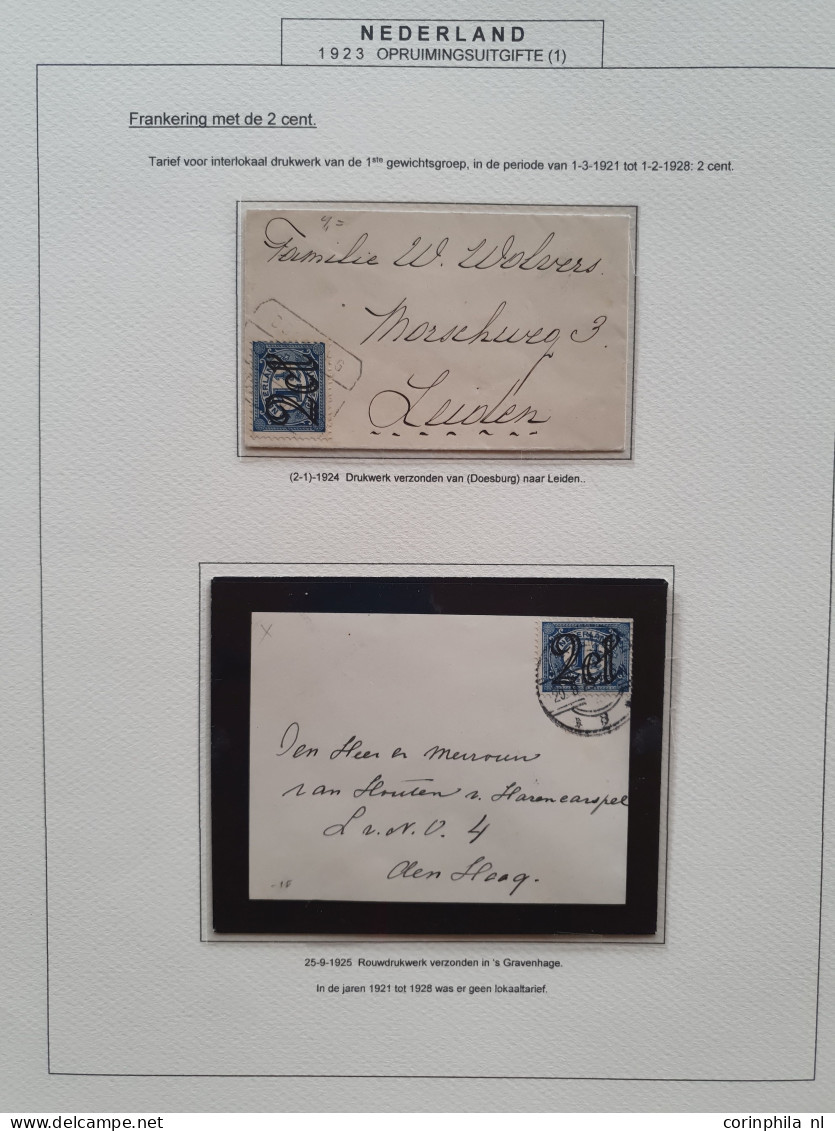 NEDERLAND
1923 OPRUIMINGSUITGIFTE (1)
Frankering met de 2 cent.
Tarief voor interlokaal drukwerk van de 1ste gewichtsgroep, in de periode van 1-3-1921 tot 1-2-1928: 2 cent.
Familie W. Wolvers.
Morschweg 3.
Leiden
2 ct
(2-1)-1924 Drukwerk verzonden van (Doesburg) naar Leiden..
X
NEDERLAND
2 ct
Den Heer en Mevrouw
van Houten v. Harencarspel
L v. N. O. 4
den Haag.
25-9-1925 Rouwdrukwerk verzonden in 's Gravenhage.
In de jaren 1921 tot 1928 was er geen lokaaltarief.
corinphila nl